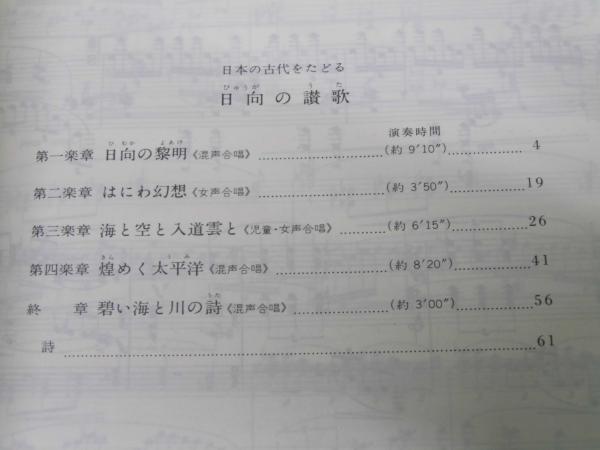 日本の古代をたどる
ひゅうが うた
日向の讃歌
演奏時間
ひ むか よあけ
第一楽章 日向の黎明《混声合唱》……………………(約 9′10″)……………… 4
第二楽章 はにわ幻想《女声合唱》……………………(約 3′50″)………………19
第三楽章 海と空と入道雲と《児童・女声合唱》…………(約 6′15″)………………26
きら うみ
第四楽章 煌めく太平洋《混声合唱》……………………(約 8′20″)………………41
うた
終 章 碧い海と川の詩《混声合唱》……………………(約 3′00″)………………56
詩 ……………………………………………………………61